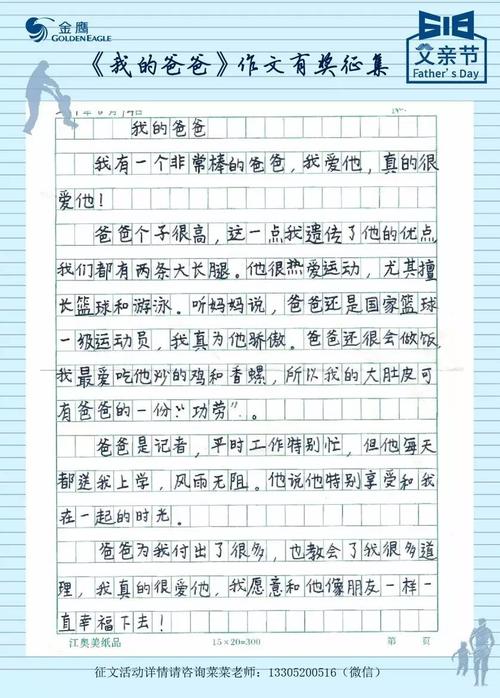 金鹰
GOLDENEAGLE
618
父亲节
Father's Day
《我的爸爸》作文有奖征集
我的爸爸
我有一个非常棒的爸爸，我爱他，真的很
爱他！
爸爸个子很高，这一点我遗传了他的优点
我们都有两条大长腿。他很热爱运动，尤其擅
长篮球和游泳。听妈妈说，爸爸还是国家篮球
一级运动员，我真为他骄傲。爸爸还很会做饭
我最爱吃他炒的鸡和香螺，所以我的大肚皮可
有爸爸的一份“功劳”。
爸爸是记者，平时工作特别忙，但他每天
都送我上学，风雨无阻。他说他特别享受和我
在一起的时光。
爸爸为我付出了很多，也教会了我很多道
理，我真的很爱他，我愿意和他像朋友一样一
直幸福下去！
江奥美纸品 15×20=300 第 页
征文活动详情请咨询菜菜老师：13305200516（微信）